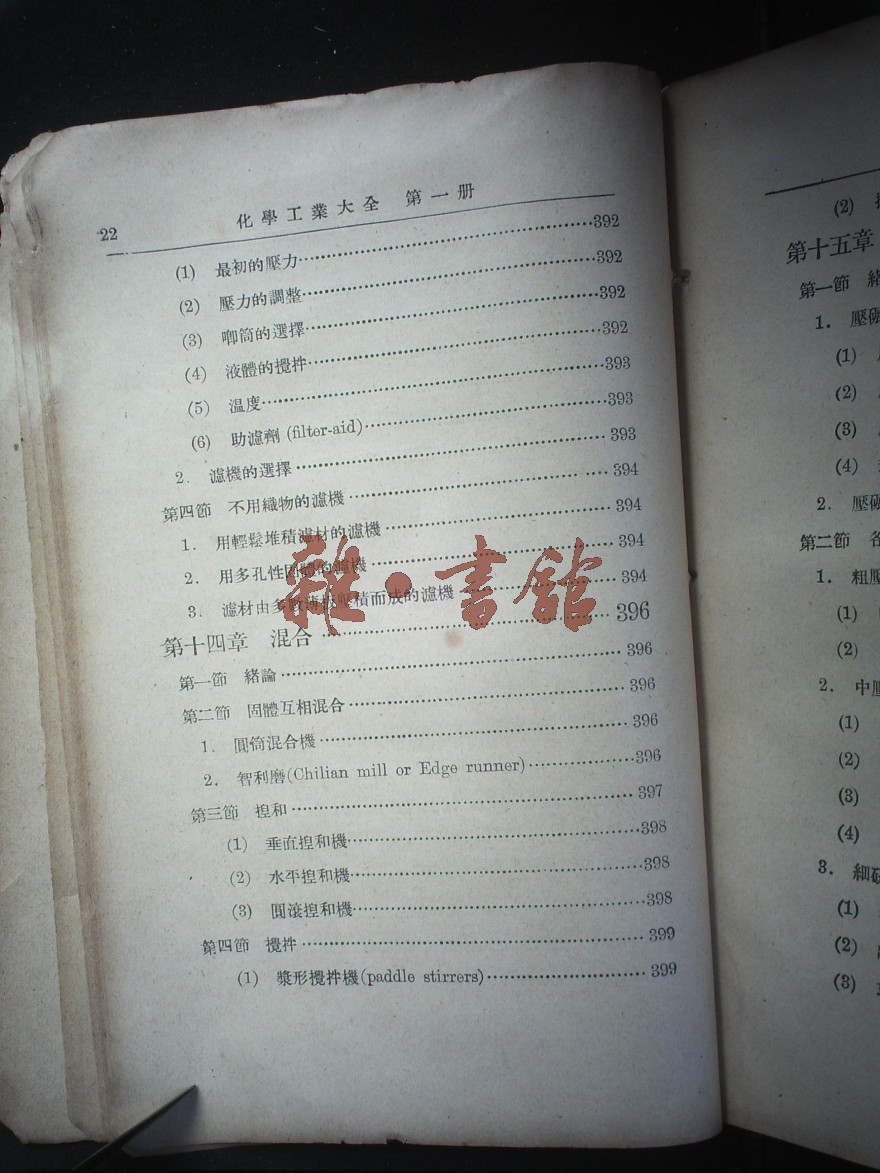 22 化學工業大全 第一册
(1) 最初的壓力……392
(2) 壓力的調整……392
(3) 唧筒的選擇……392
(4) 液體的攪拌……392
(5) 温度……393
(6) 助濾劑 (filter-aid)……393
2. 濾機的選擇……393
第四節 不用織物的濾機……394
1. 用輕鬆堆積濾材的濾機……394
2. 用多孔性固體的濾機……394
3. 濾材由多數薄板壓積而成的濾機……394
第十四章 混合……396
第一節 緒論……396
第二節 固體互相混合……396
1. 圓筒混合機……396
2. 智利磨(Chilian mill or Edge runner)……396
第三節 揑和……397
(1) 垂直揑和機……398
(2) 水平揑和機……398
(3) 圓滾揑和機……398
第四節 攪拌……399
(1) 槳形攪拌機(paddle stirrers)……399
雜·書館
(2)
第十五章
第一節 緒
1. 壓碾
(1)
(2)
(3)
(4)
2. 壓碾
第二節 各
1. 粗壓
(1)
(2)
2. 中壓
(1)
(2)
(3)
(4)
3. 細
(1)
(2)
(3)